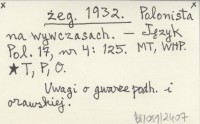 żeg. 1932. Polonista
na wywczasach. — Język
Pol. 17, nr 4: 125. MT, WHP.
★ T, P, O.
Uwagi o gwarze podh. i
orawskiej.